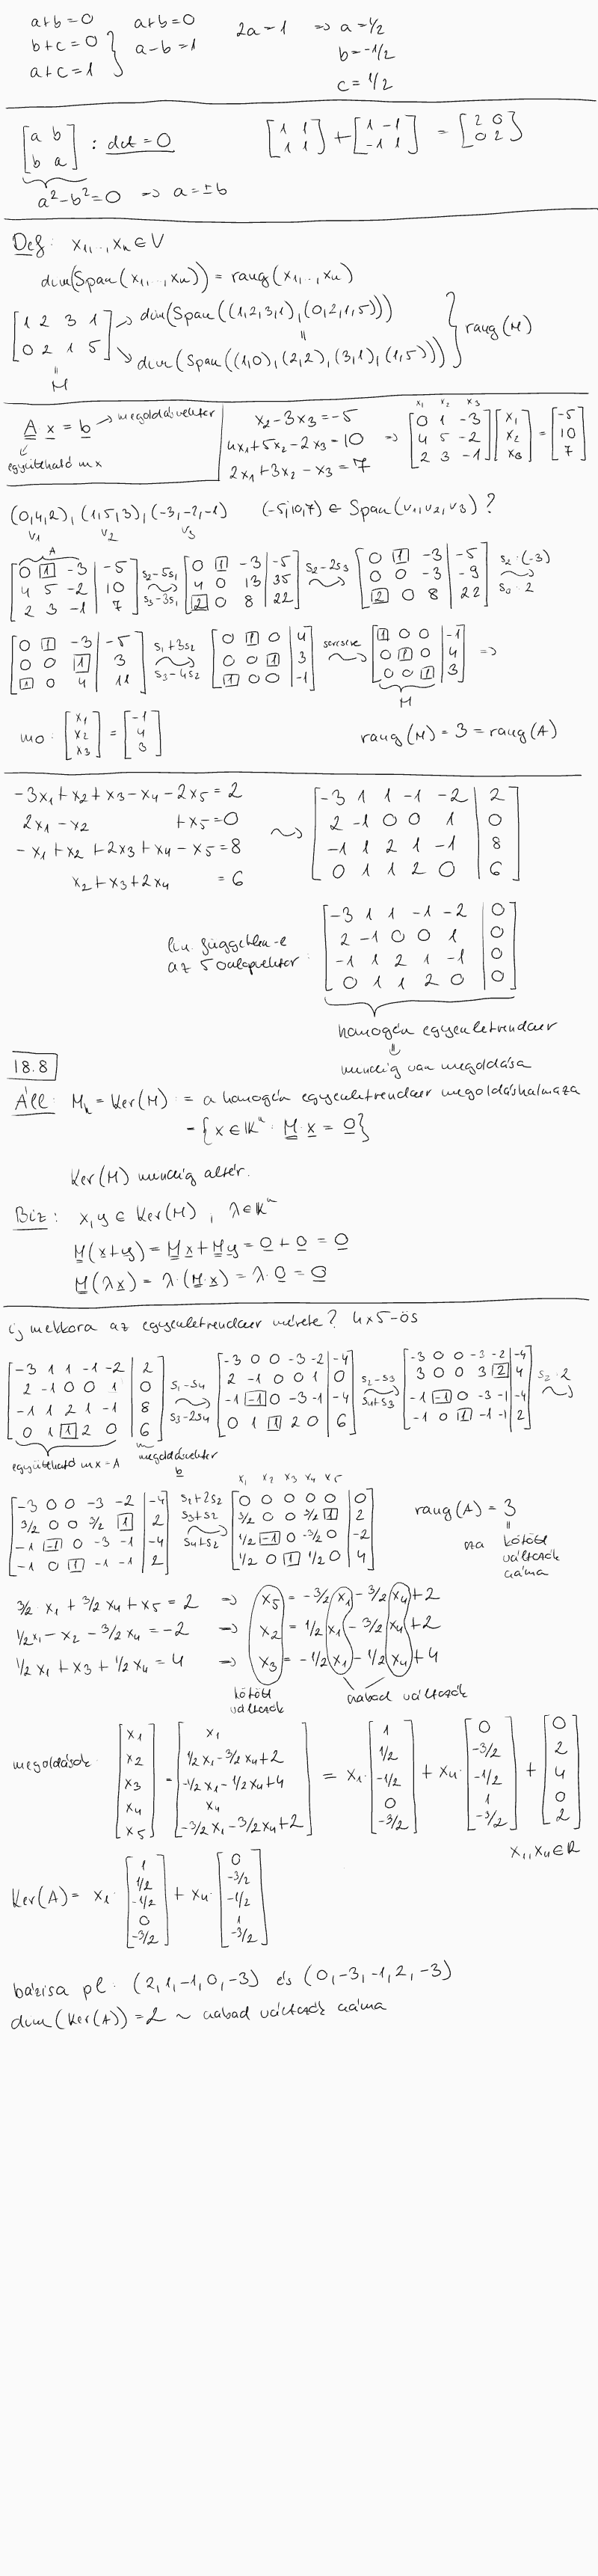 a+b=0 a+b=0 2a=1 => a=1/2
b+c=0 } a-b=1 b=-1/2
a+c=1 c=1/2
[a b; b a] : det=0 [1 1; 1 1] + [1 -1; -1 1] = [2 0; 0 2]
a²-b²=0 => a=±b
Def: x₁,..,xₙ∈V
dim(Span(x₁,..,xₙ)) = rang(x₁,..,xₙ)
[1 2 3 1; 0 2 1 5] → dim(Span((1,2,3,1),(0,2,1,5)))
= } rang(M)
→ dim(Span((1,0),(2,2),(3,1),(1,5)))
= M
A x = b → megoldásvektor
együttható mx
x₂-3x₃=-5
4x₁+5x₂-2x₃=10 => [0 1 -3; 4 5 -2; 2 3 -1] [x₁; x₂; x₃] = [-5; 10; 7]
2x₁+3x₂-x₃=7
x₁ x₂ x₃
(0,4,2), (1,5,3), (-3,-2,-1) (-5,10,7) ∈ Span(v₁,v₂,v₃)?
v₁ v₂ v₃
A
[0 1 -3 | -5; 4 5 -2 | 10; 2 3 -1 | 7] s₂-5s₁ s₃-3s₁ [0 1 -3 | -5; 4 0 13 | 35; 2 0 8 | 22] s₂-2s₃ [0 1 -3 | -5; 0 0 -3 | -9; 2 0 8 | 22] s₂:(-3) s₃:2
[0 1 -3 | -5; 0 0 1 | 3; 1 0 4 | 11] s₁+3s₂ s₃-4s₂ [0 1 0 | 4; 0 0 1 | 3; 1 0 0 | -1] sorcsere [1 0 0 | -1; 0 1 0 | 4; 0 0 1 | 3] =>
M
mo: [x₁; x₂; x₃] = [-1; 4; 3] rang(M) = 3 = rang(A)
-3x₁+x₂+x₃-x₄-2x₅=2
2x₁-x₂ +x₅=0
-x₁+x₂+2x₃+x₄-x₅=8
x₂+x₃+2x₄ =6
[-3 1 1 -1 -2 | 2; 2 -1 0 0 1 | 0; -1 1 2 1 -1 | 8; 0 1 1 2 0 | 6]
lin. független-e
az 5 oszlopvektor:
[-3 1 1 -1 -2 | 0; 2 -1 0 0 1 | 0; -1 1 2 1 -1 | 0; 0 1 1 2 0 | 0]
homogén egyenletrendszer
mindig van megoldása
18.8
Áll: Mₕ = Ker(M) := a homogén egyenletrendszer megoldáshalmaza
= {x∈𝕂ⁿ: M·x = 0}
Ker(M) mindig altér.
Biz: x,y ∈ Ker(M), λ∈𝕂ⁿ
M(x+y) = Mx+My = 0+0 = 0
M(λx) = λ·(M·x) = λ·0 = 0
i, mekkora az egyenletrendszer mérete? 4x5-ös
[-3 1 1 -1 -2 | 2; 2 -1 0 0 1 | 0; -1 1 2 1 -1 | 8; 0 1 1 2 0 | 6] s₁-s₄ s₃-2s₄ [-3 0 0 -3 -2 | -4; 2 -1 0 0 1 | 0; -1 -1 0 -3 -1 | -4; 0 1 1 2 0 | 6] s₂-s₃ s₄+s₃ [-3 0 0 -3 -2 | -4; 3 0 0 3 2 | 4; -1 -1 0 -3 -1 | -4; -1 0 1 -1 -1 | 2] s₂:2
együttható mx=A megoldásvektor
b
[-3 0 0 -3 -2 | -4; 3/2 0 0 3/2 1 | 2; -1 -1 0 -3 -1 | -4; -1 0 1 -1 -1 | 2] s₁+2s₂ s₃+s₂ s₄+s₂ [0 0 0 0 0 | 0; 3/2 0 0 3/2 1 | 2; 1/2 -1 0 -3/2 0 | -2; 1/2 0 1 1/2 0 | 4]
x₁ x₂ x₃ x₄ x₅
rang(A) = 3
kötött
változók
száma
3/2·x₁+3/2x₄+x₅=2 => x₅=-3/2x₁-3/2x₄+2
1/2x₁-x₂-3/2x₄=-2 => x₂=1/2x₁-3/2x₄+2
1/2x₁+x₃+1/2x₄=4 => x₃=-1/2x₁-1/2x₄+4
kötött változók szabad változók
megoldások: [x₁; x₂; x₃; x₄; x₅] = [x₁; 1/2x₁-3/2x₄+2; -1/2x₁-1/2x₄+4; x₄; -3/2x₁-3/2x₄+2] = x₁·[1; 1/2; -1/2; 0; -3/2] + x₄·[0; -3/2; -1/2; 1; -3/2] + [0; 2; 4; 0; 2]
x₁,x₄∈ℝ
Ker(A) = x₁·[1; 1/2; -1/2; 0; -3/2] + x₄·[0; -3/2; -1/2; 1; -3/2]
bázisa pl: (2,1,-1,0,-3) és (0,-3,-1,2,-3)
dim(Ker(A))=2 ~ szabad változók száma